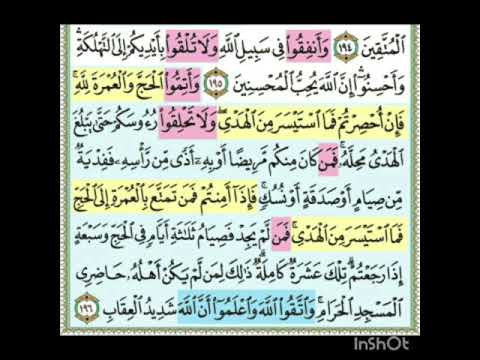 ٱلْمُتَّقِينَ ١٩٤ وَأَنفِقُوا۟ فِى سَبِيلِ ٱللَّهِ وَلَا تُلْقُوا۟ بِأَيْدِيكُمْ إِلَى ٱلتَّهْلُكَةِ ۛ
وَأَحْسِنُوٓا۟ ۛ إِنَّ ٱللَّهَ يُحِبُّ ٱلْمُحْسِنِينَ ١٩٥ وَأَتِمُّوا۟ ٱلْحَجَّ وَٱلْعُمْرَةَ لِلَّهِ ۚ
فَإِنْ أُحْصِرْتُمْ فَمَا ٱسْتَيْسَرَ مِنَ ٱلْهَدْىِ ۖ وَلَا تَحْلِقُوا۟ رُءُوسَكُمْ حَتَّىٰ يَبْلُغَ
ٱلْهَدْىُ مَحِلَّهُۥ ۚ فَمَن كَانَ مِنكُم مَّرِيضًا أَوْ بِهِۦٓ أَذًى مِّن رَّأْسِهِۦ فَفِدْيَةٌ
مِّن صِيَامٍ أَوْ صَدَقَةٍ أَوْ نُسُكٍ ۚ فَإِذَآ أَمِنتُمْ فَمَن تَمَتَّعَ بِٱلْعُمْرَةِ إِلَى ٱلْحَجِّ
فَمَا ٱسْتَيْسَرَ مِنَ ٱلْهَدْىِ ۚ فَمَن لَّمْ يَجِدْ فَصِيَامُ ثَلَٰثَةِ أَيَّامٍ فِى ٱلْحَجِّ وَسَبْعَةٍ
إِذَا رَجَعْتُمْ ۗ تِلْكَ عَشَرَةٌ كَامِلَةٌ ۗ ذَٰلِكَ لِمَن لَّمْ يَكُنْ أَهْلُهُۥ حَاضِرِى
ٱلْمَسْجِدِ ٱلْحَرَامِ ۚ وَٱتَّقُوا۟ ٱللَّهَ وَٱعْلَمُوٓا۟ أَنَّ ٱللَّهَ شَدِيدُ ٱلْعِقَابِ ١٩٦
InShOt